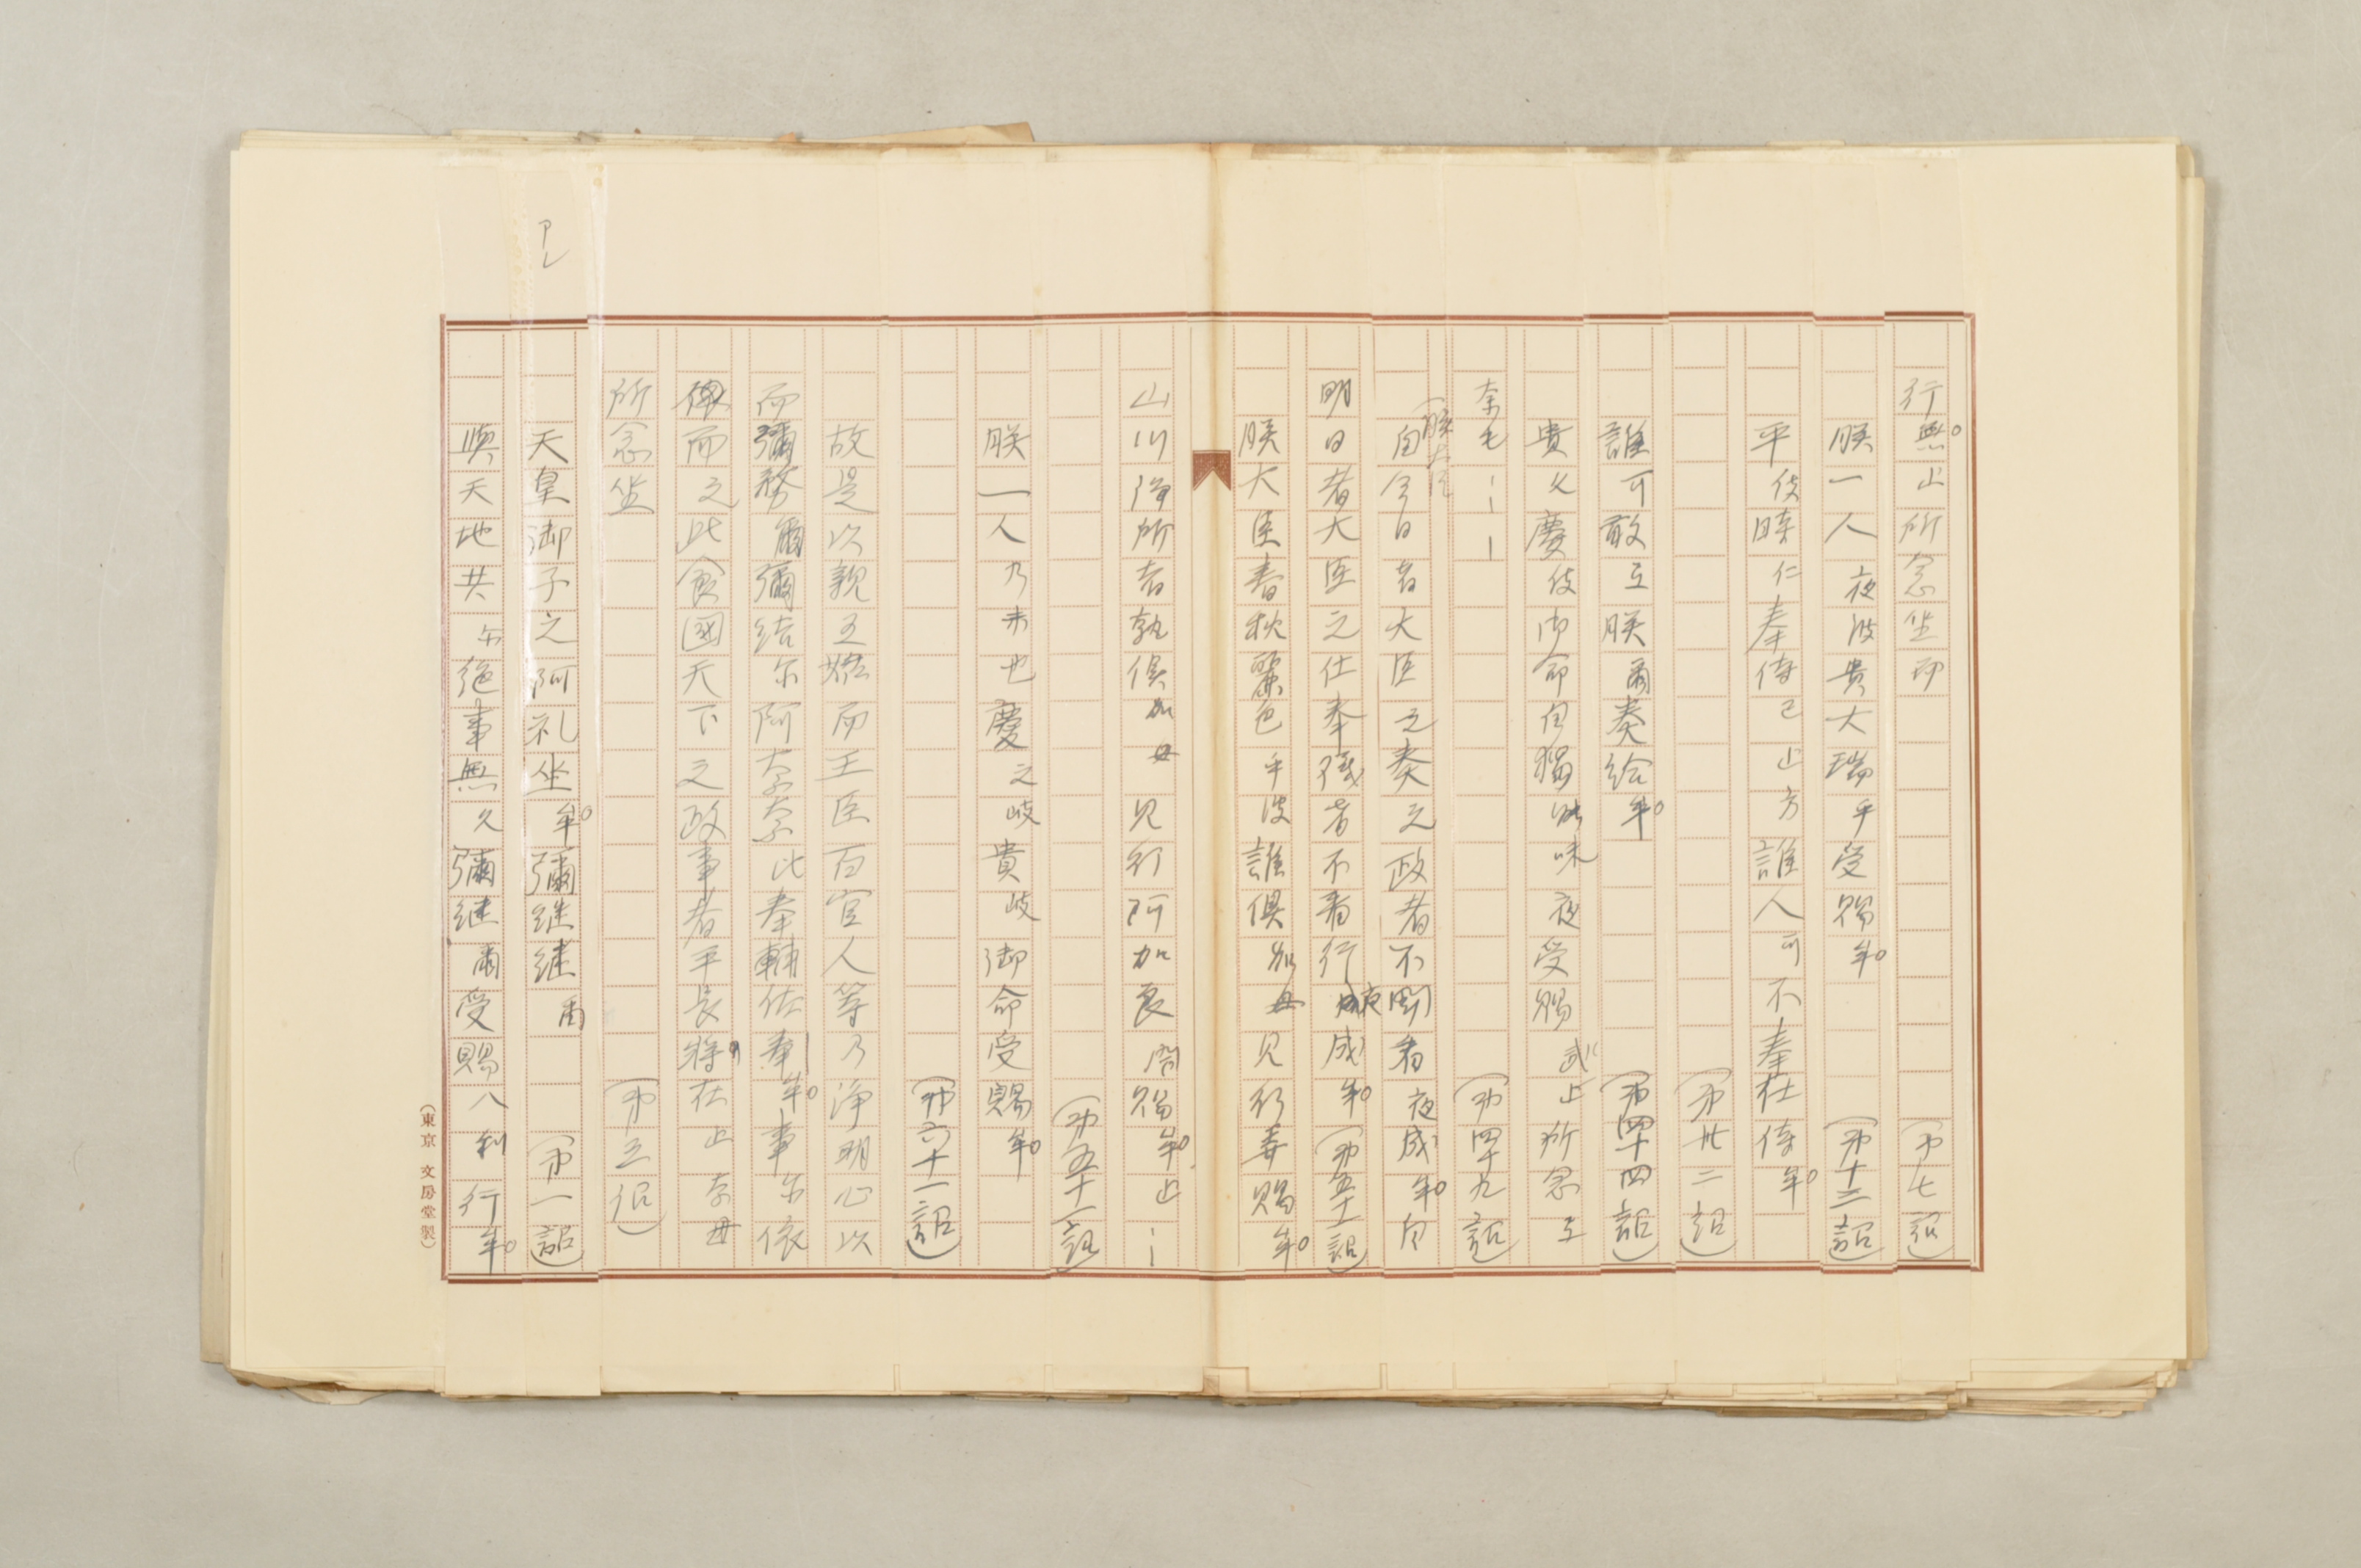 行無。止所念坐而 (第七詔)
朕一人夜波貴大瑞乎受賜牟。 (第十三詔)
平伎時仁奉侍己止方誰人可不奉仕侍牟。
(第卅二詔)
誰可敢互朕爾奏給牟。 (第四十四詔)
貴久慶伎御命自獨能味夜受賜武止所念互
奈毛––– (第四十九詔)
(朕大臣
自今日者大臣之奏之政者不聞看夜成牟。自
明日者大臣之仕奉儀者不看行夜成牟。(第五十一詔)
朕大臣春秋麗色乎波誰俱加母見行弄賜牟。
山川淨所者孰俱加母見行阿加良閇賜牟。止––
(第五十一詔)
朕一人乃未也慶之岐貴岐御命受賜牟。
(第六十一詔)
故是以親王始而王臣百官人等乃淨明心以
而彌務爾彌結尓阿奈奈比奉輔佐奉牟。事尓依
而之此食國天下之政事者平長將在止奈母
所念坐 (第三詔)
アレ
天皇御子之阿礼坐牟。彌継継爾 (第一詔)
與天地共尓絶事無久彌継爾受賜八利行牟。
(東京 文房堂製)